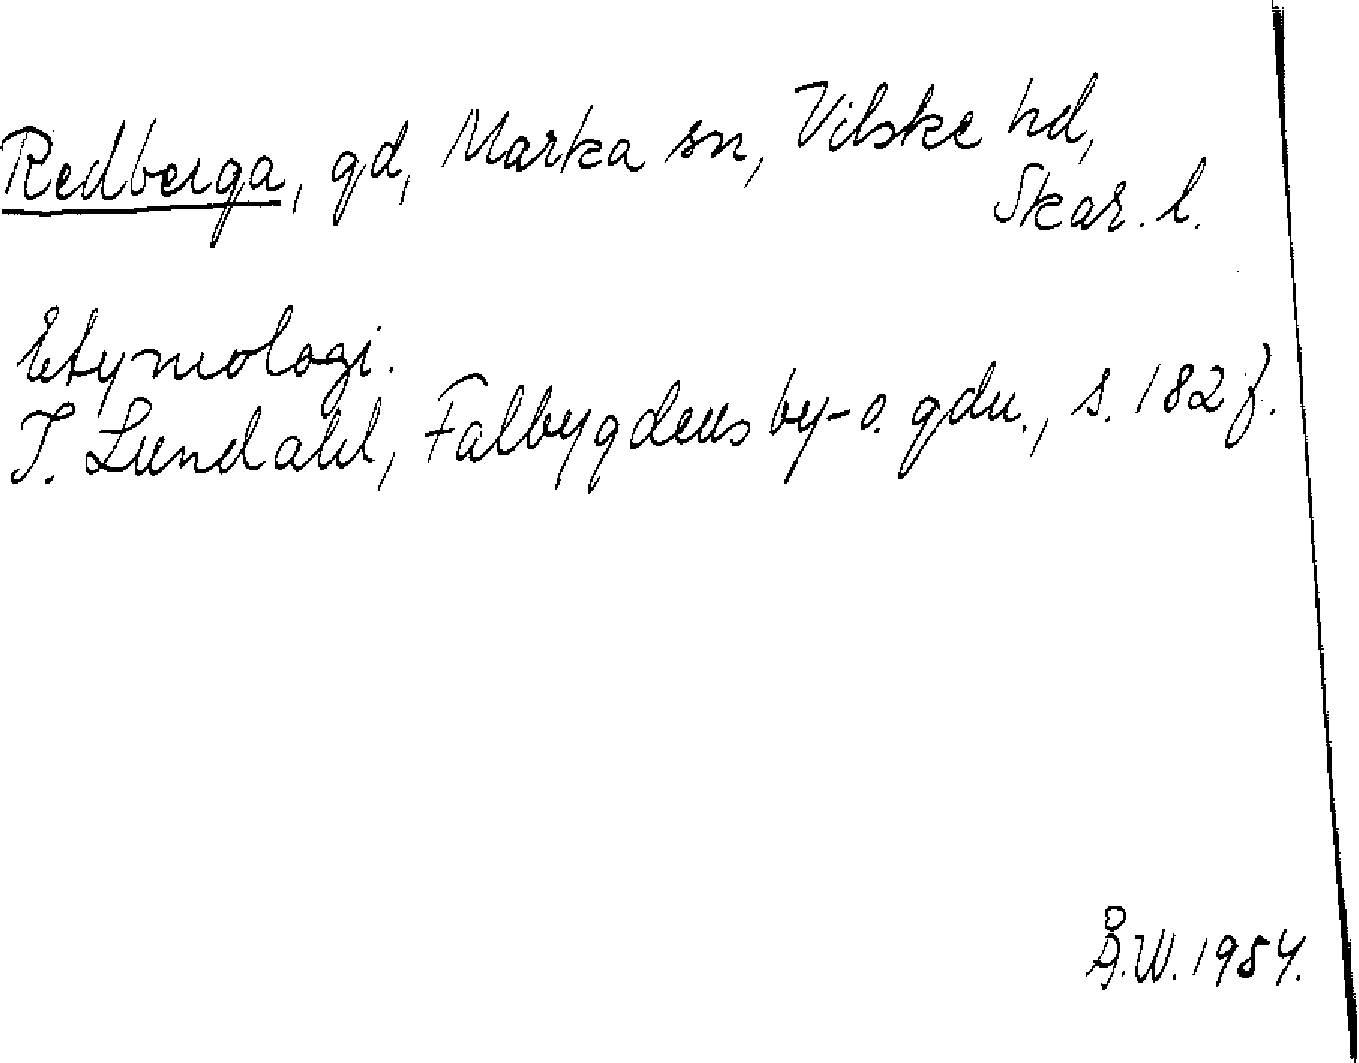 Redberga, gd, Marka sn, Vilske hd,
Skar. l.
Etymologi.
I. Lundahl, Falbygdens by- o. gdn., s. 182 f.
Å.W. 1984.